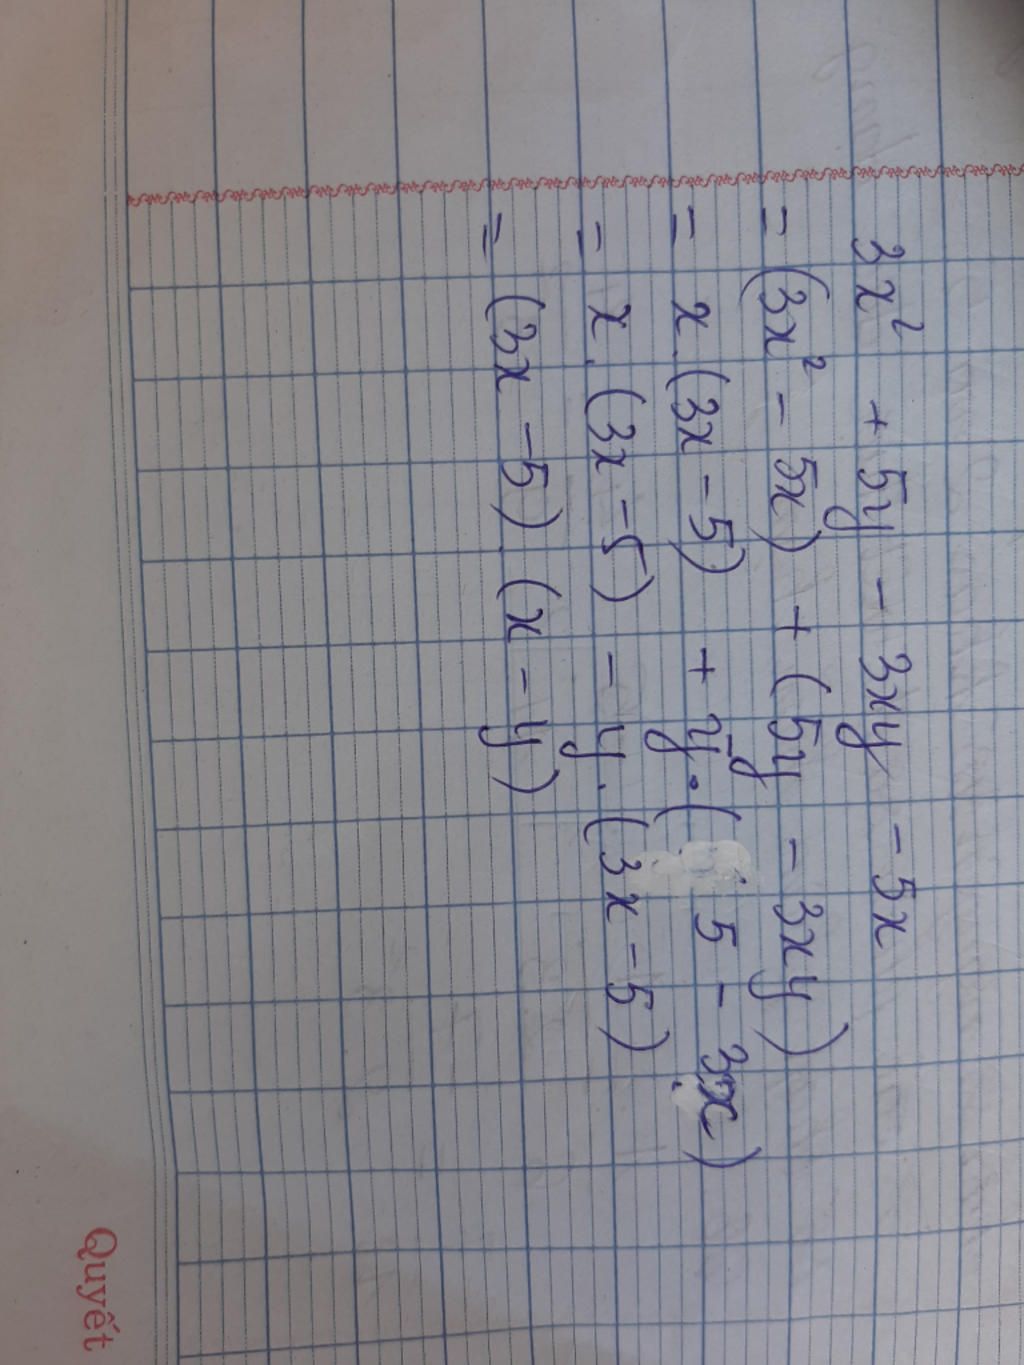 3x² + 5y - 3xy - 5x
= (3x² - 5x) + (5y - 3xy)
= x.(3x - 5) + y.(5 - 3x)
= x.(3x - 5) - y.(3x - 5)
= (3x - 5).(x - y)
Quyết